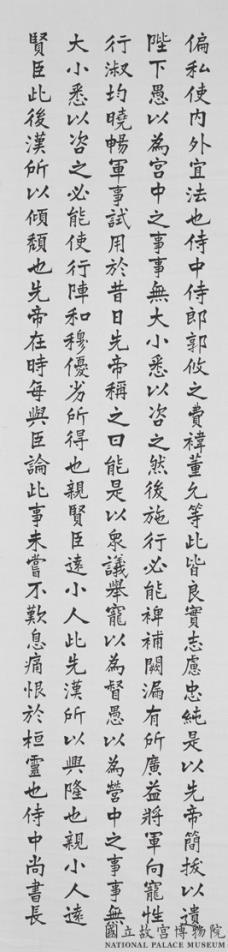 偏私使內外宜法也侍中侍郎郭攸之費禕董允等此皆良實志慮忠純是以先帝簡拔以遺
陛下愚以為宮中之事事無大小悉以咨之然後施行必能裨補闕漏有所廣益將軍向寵性
行淑均曉暢軍事試用於昔日先帝稱之曰能是以眾議舉寵以為督愚以為營中之事事無
大小悉以咨之必能使行陣和穆優劣所得也親賢臣遠小人此先漢所以興隆也親小人遠
賢臣此後漢所以傾頹也先帝在時每與臣論此事未嘗不歎息痛恨於桓靈也侍中尚書長
國立故宮博物院
NATIONAL PALACE MUSEUM